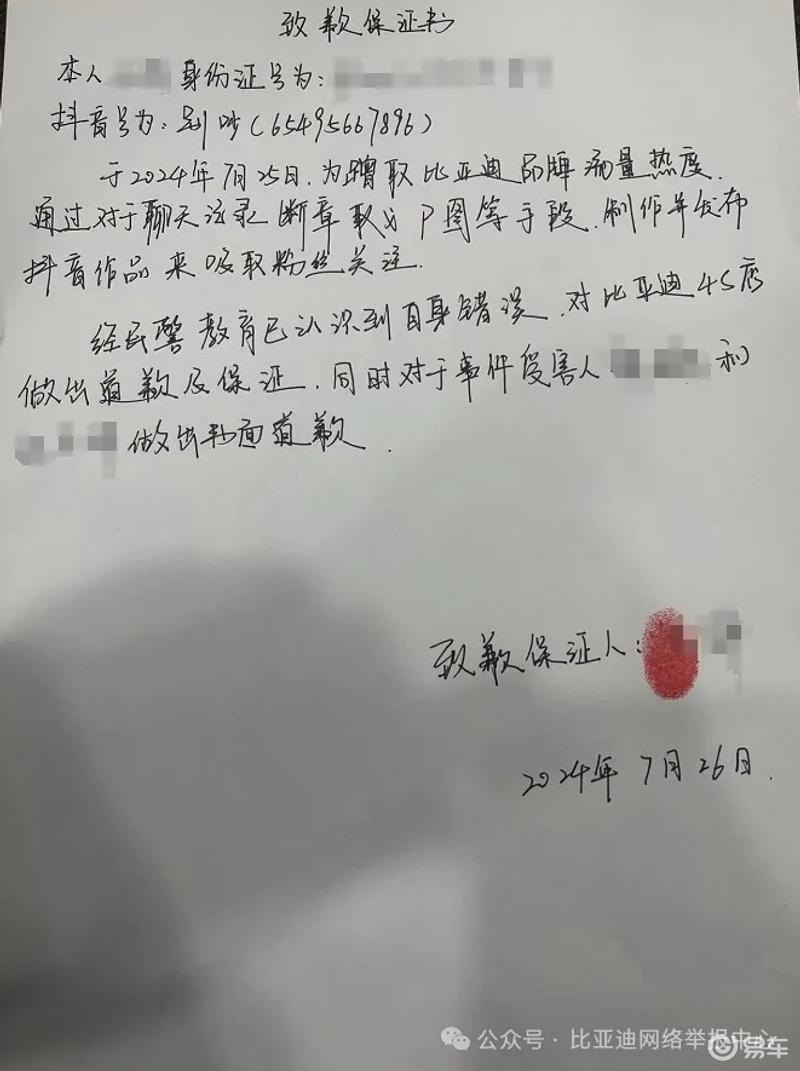 致歉保证书
本人 身份证号为:
抖音号为:别吵(65495667896)
于2024年7月25日.为蹭取比亚迪品牌流量热度.
通过对于聊天记录断章取义P图等手段.制作并发布
抖音作品来吸取粉丝关注.
经民警教育已认识到自身错误.对比亚迪4S店
做出道歉及保证.同时对于事件受害人 和
做出书面道歉.
致歉保证人:
2024年7月26日.
公众号·比亚迪网络举报中心
易车